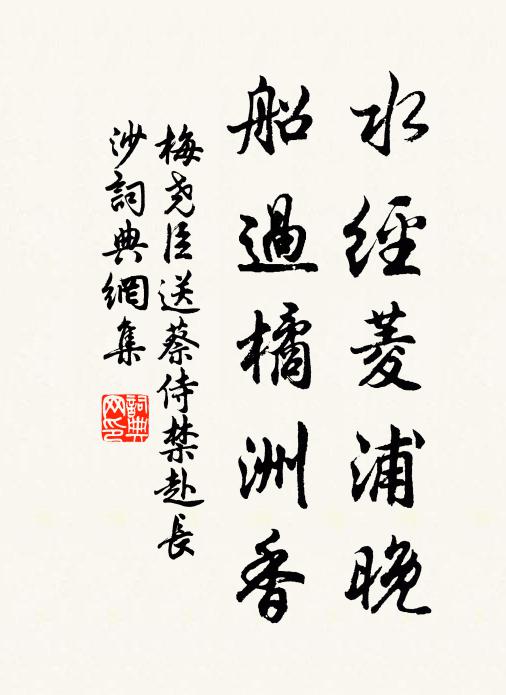 水經菱浦晚
船過橘洲香
梅尧臣送蔡侍禁赴長
沙詞典網集
詞典
网印